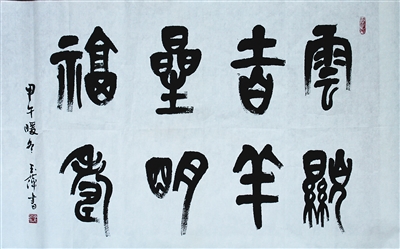 雲顯
吉羊
星明
福壽
甲午暖冬玉萍書